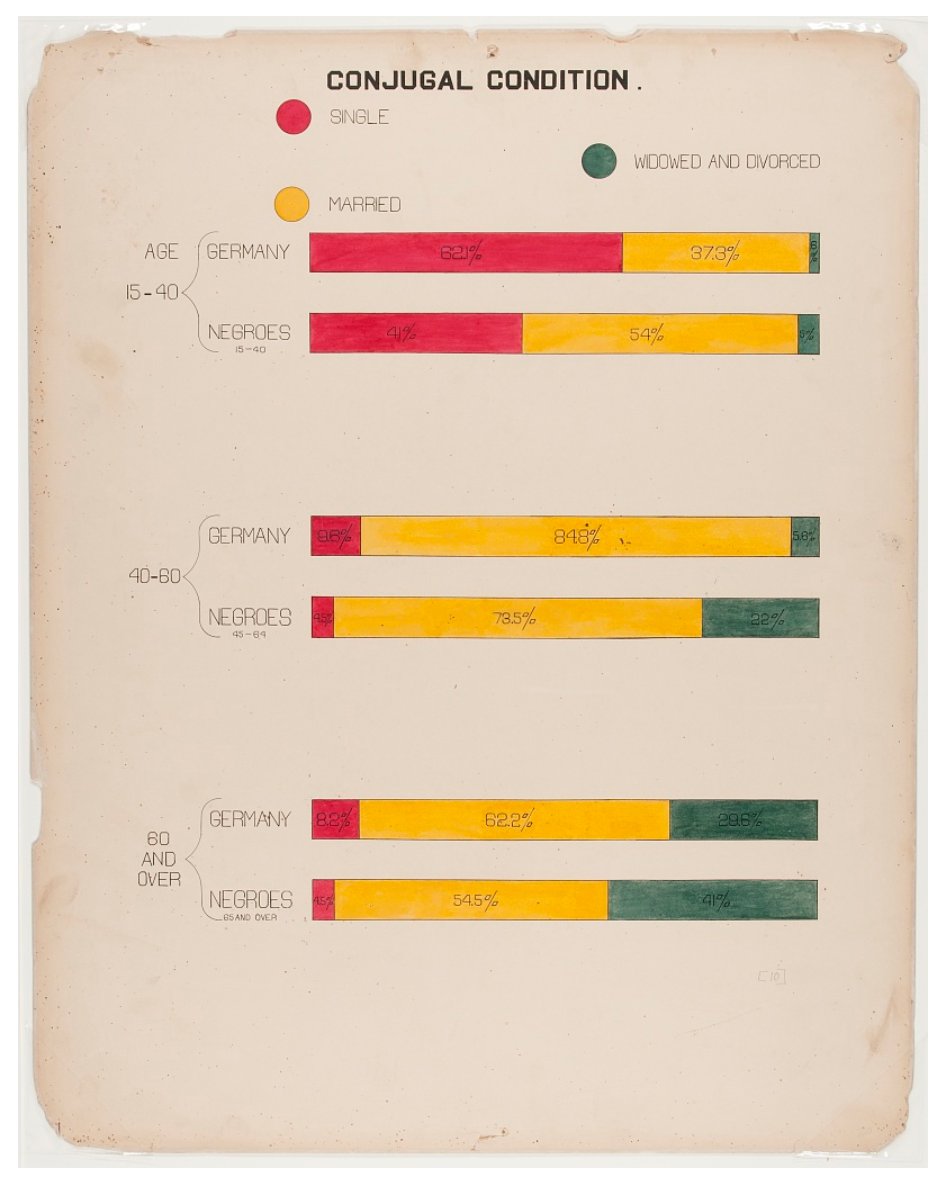 CONJUGAL CONDITION.
SINGLE
WIDOWED AND DIVORCED
MARRIED
AGE
15-40
GERMANY
62.1% 37.3%
NEGROES
15-40
41% 54% 5%
40-60
GERMANY
9.6% 84.8% 5.6%
NEGROES
45-64
4.5% 73.5% 22%
60
AND
OVER
GERMANY
8.2% 62.2% 29.6%
NEGROES
65 AND OVER
4.5% 54.5% 41%
[10]